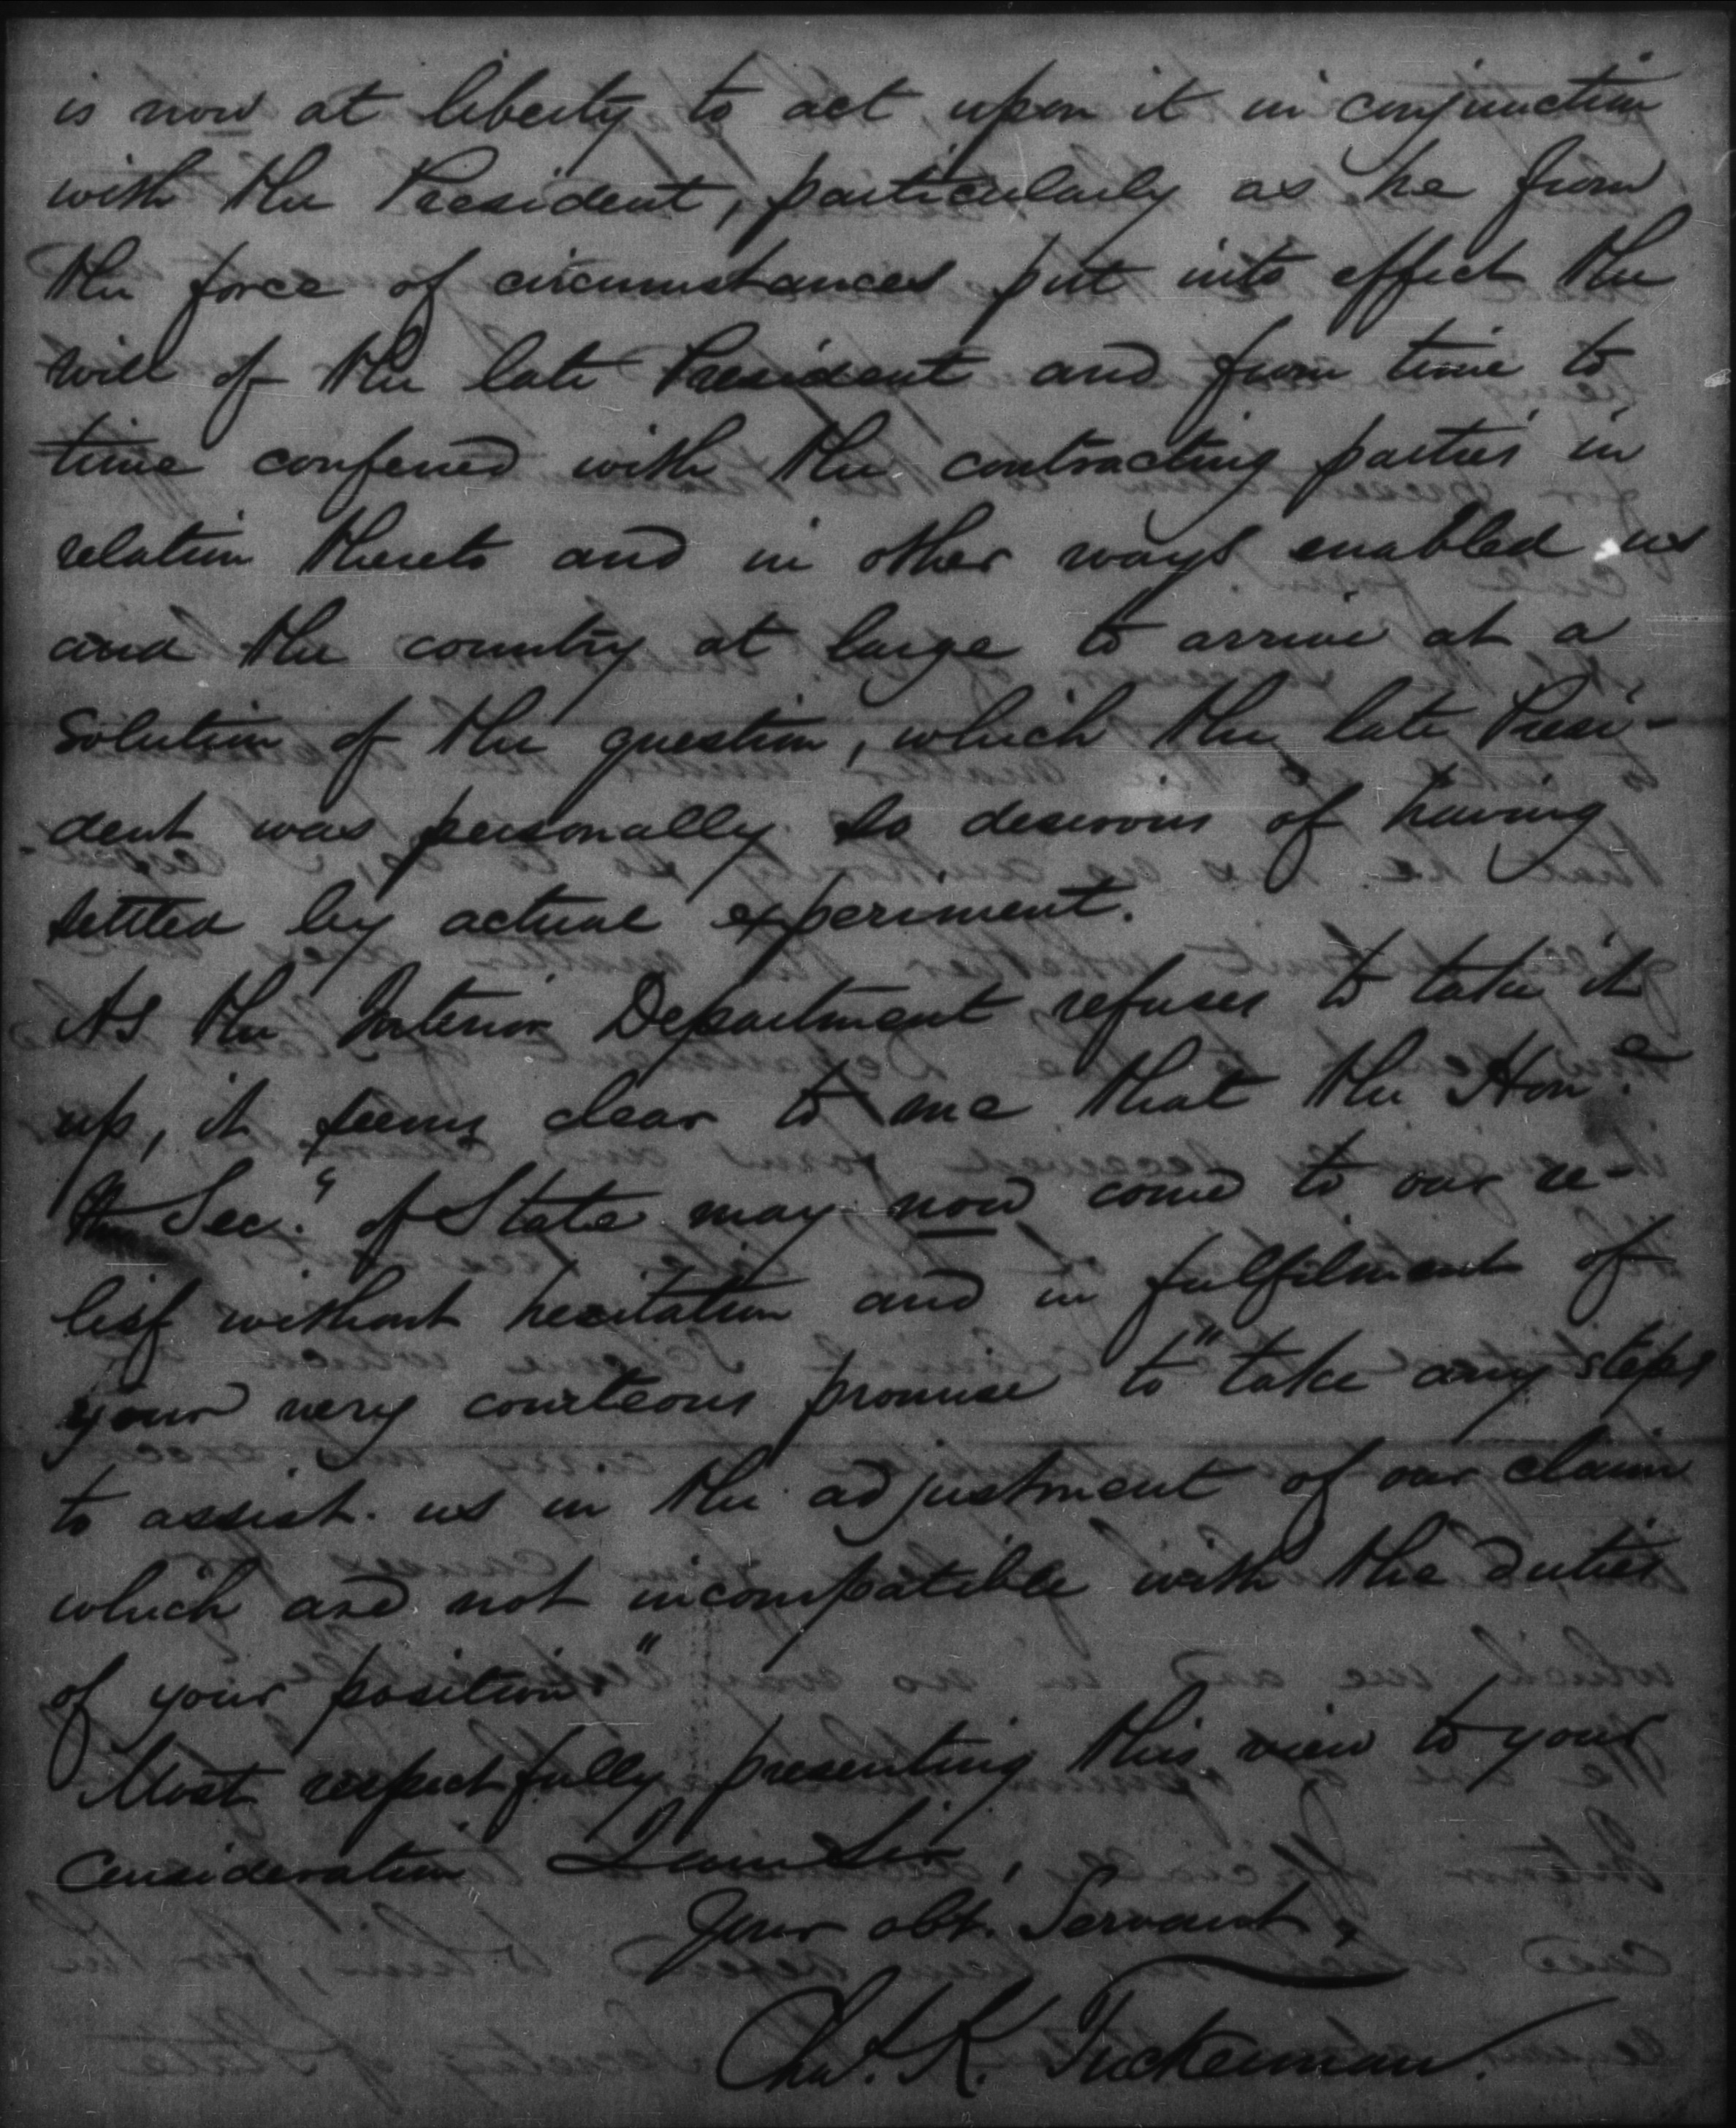 is now at liberty to act upon it in conjunction
with the President, particularly as he from
the force of circumstances put into effect the
will of the late President and from time to
time conferred with the contracting parties in
relation thereto and in other ways enabled us
and the country at large to arrive at a
solution of the question, which the late Presi-
dent was personally so desirous of having
settled by actual experiment.
As the Interior Department refuses to take it
up, it seems clear to me that the Hon.e
the Sec.y of State may now come to our re-
lief without hesitation and in fulfilment of
your very courteous promise to "take any steps
to assist us in the adjustment of our claim
which are not incompatible with the duties
of your position."
Most respectfully presenting this view to your
Consideration I am Sir,
Your obt. Servant,
Chas. K. Tuckerman.